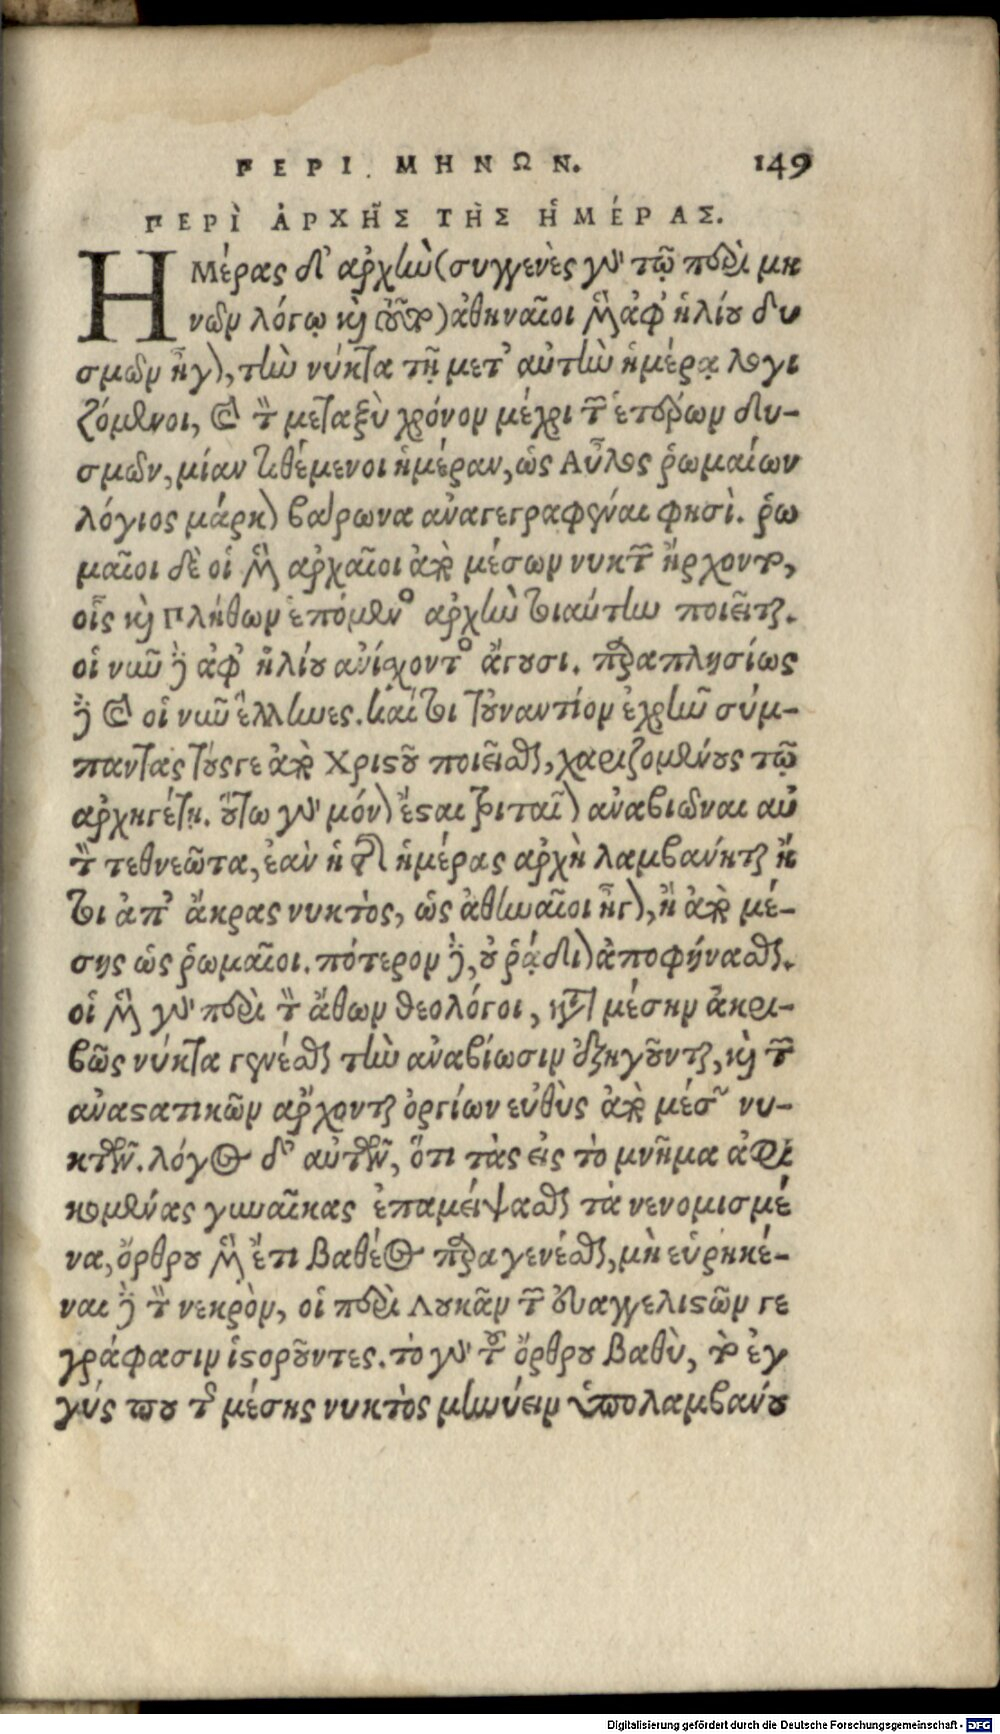 ΠΕΡΙ ΜΗΝΩΝ. 149
ΠΕΡῚ ἈΡΧΗ͂Σ ΤΗ͂Σ ἩΜΈΡΑΣ.
ΗΜέρας δ' ἀρχὴν (συγγενὲς γὰρ τῷ περὶ μη
νῶν λόγῳ καὶ ) ἀθηναῖοι μὲν ἀφ' ἡλίου δυ
σμῶν ἦγον, τὴν νύκτα τῇ μετ' αὐτὴν ἡμέρᾳ λογι
ζόμενοι, καὶ τὸν μεταξὺ χρόνον μέχρι τῶν ἑτέρων δυ-
σμῶν, μίαν τιθέμενοι ἡμέραν, ὡς Αὖλος ῥωμαίων
λόγιος μάρκον βάρωνα ἀναγεγραφέναι φησὶ. ῥω
μαῖοι δὲ οἱ μὲν ἀρχαῖοι ἀπὸ μέσων νυκτῶν ἤρχοντο,
οἷς καὶ Πλήθων ἑπόμενος ἀρχὴν ταύτην ποιεῖται.
οἱ νῦν δὲ ἀφ' ἡλίου ἀνίσχοντος ἄγουσι. παραπλησίως
δὲ καὶ οἱ νῦν ἕλληνες. καίτοι τοὐναντίον ἐχρῆν σύμ-
παντας τούς γε ἀπὸ Χριστοῦ ποιεῖσθαι, χαριζομένους τῷ
ἀρχηγέτῃ. οὕτω γὰρ μόνον ἔσται τριταῖον ἀναβιῶναι αὖ
τὸν τεθνεῶτα, ἐὰν ἡ τῆς ἡμέρας ἀρχὴ λαμβάνηται ἤ
τοι ἀπ' ἄκρας νυκτὸς, ὡς ἀθηναῖοι ἦγον, ἢ ἀπὸ μέ-
σης ὡς ῥωμαῖοι. πότερον δὲ, οὐ ῥᾴδιον ἀποφήνασθαι.
οἱ μὲν γὰρ περὶ τὸν ἄθων θεολόγοι, κατὰ μέσην ἀκρι-
βῶς νύκτα γενέσθαι τὴν ἀναβίωσιν ἐξηγοῦνται, καὶ τῶν
ἀναστατικῶν ἄρχονται ὀργίων εὐθὺς ἀπὸ μέσων νυ-
κτῶν. λόγος δ' αὐτῶν, ὅτι τὰς εἰς τὸ μνῆμα ἀφι
κομένας γυναῖκας ἐπαμείψασθαι τὰ νενομισμέ
να, ὄρθρου μὲν ἔτι βαθέος παραγενέσθαι, μὴ εὑρηκέ-
ναι δὲ τὸν νεκρὸν, οἱ περὶ Λουκᾶν τῶν εὐαγγελιστῶν γε
γράφασιν ἱστοροῦντες. τὸ γὰρ τοῦ ὄρθρου βαθὺ, τὸ ἐγ
γύς που τῆς μέσης νυκτὸς μηνύειν ὑπολαμβάνου
Digitalisierung gefördert durch die Deutsche Forschungsgemeinschaft - DFG